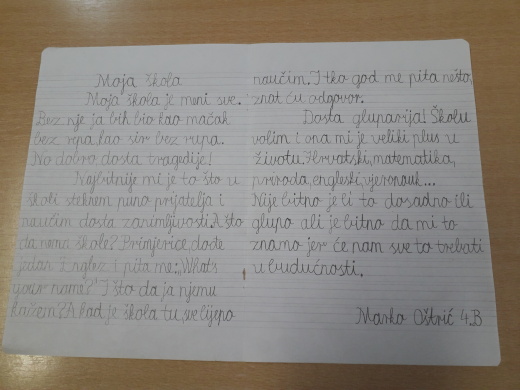 Moja škola
Moja škola je meni sve.
Bez nje ja bih bio kao mačak
bez repa kao sir bez rupa.
No dobro, dosta tragedije!
Najbitnije mi je to što u
školi steknem puno prijatelja i
naučim dosta zanimljivosti. A što
da nema škole? Primjerice, dođe
jedan Englez i pita me: „What's
your name?" I što da ja njemu
kažem? A kad je škola tu, sve lijepo
naučim. I tko god me pita nešto,
znat ću odgovor.
Dosta gluparija! Školu
volim i ona mi je veliki plus u
životu. Hrvatski, matematika,
priroda, engleski, vjeronauk...
Nije bitno je li to dosadno ili
glupo ali je bitno da mi to
znamo jer će nam sve to trebati
u budućnosti.
Marko Oštrić 4.B